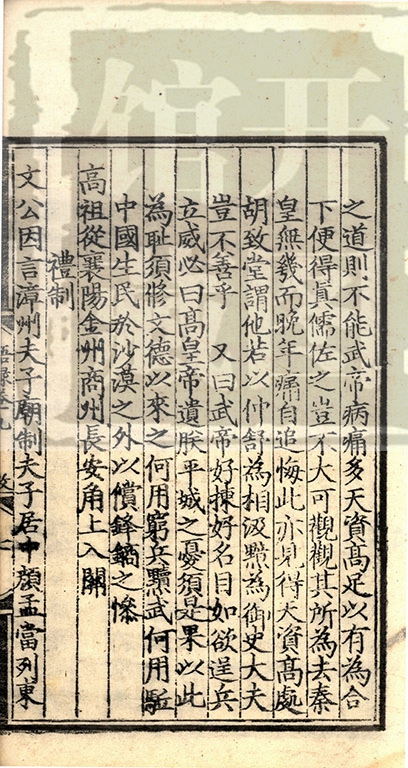 之道則不能武帝病痛多天資高足以有為合
下便得真儒佐之豈不大可觀觀其所為去秦
皇無幾而晚年痛自追悔此亦見得天資高處
胡致堂謂他若以仲舒為相汲黯為御史大夫
豈不善乎 又曰武帝好揀好名目如欲逞兵
立威必曰高皇帝遺朕平城之憂須是果以此
為恥須修文德以來之何用窮兵黷武何用駈
中國生民於沙漠之外以償鋒鏑之慘
高祖從襄陽金州商州長安角上入關
禮制
文公因言漳州夫子廟制夫子居中顏孟當列東
語錄卷九
開
館